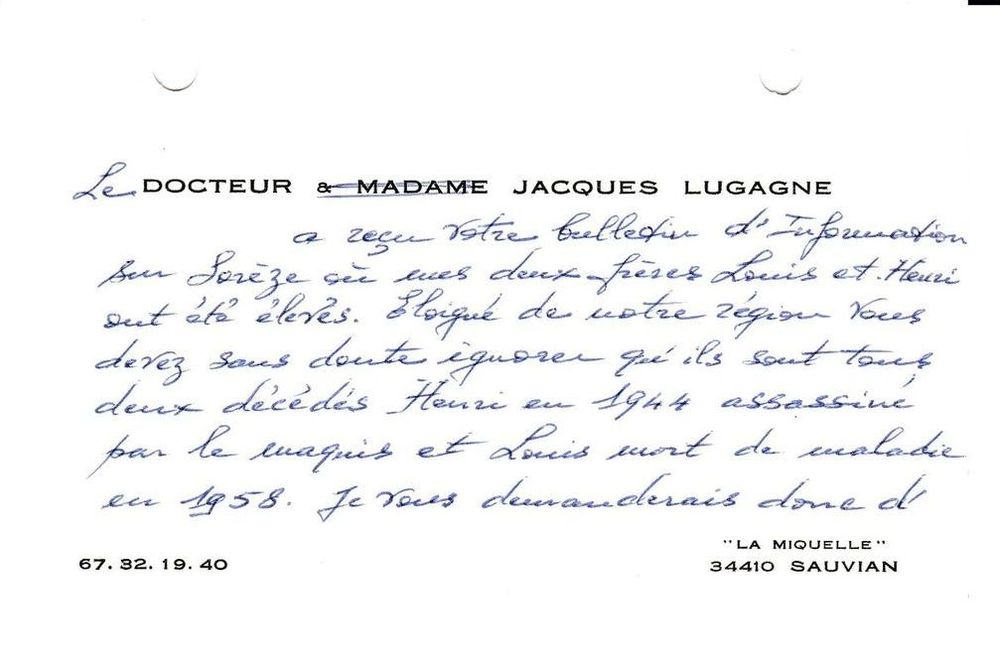 Le DOCTEUR & MADAME JACQUES LUGAGNE
a reçu votre bulletin d'Information
sur Sorèze où mes deux frères Louis et Henri
ont été élevés. Eloigné de notre région vous
devez sans doute ignorer qu'ils sont tous
deux décédés Henri en 1944 assassiné
par le maquis et Louis mort de maladie
en 1958. Je vous demanderais donc d'
"LA MIQUELLE"
67. 32. 19. 40
34410 SAUVIAN